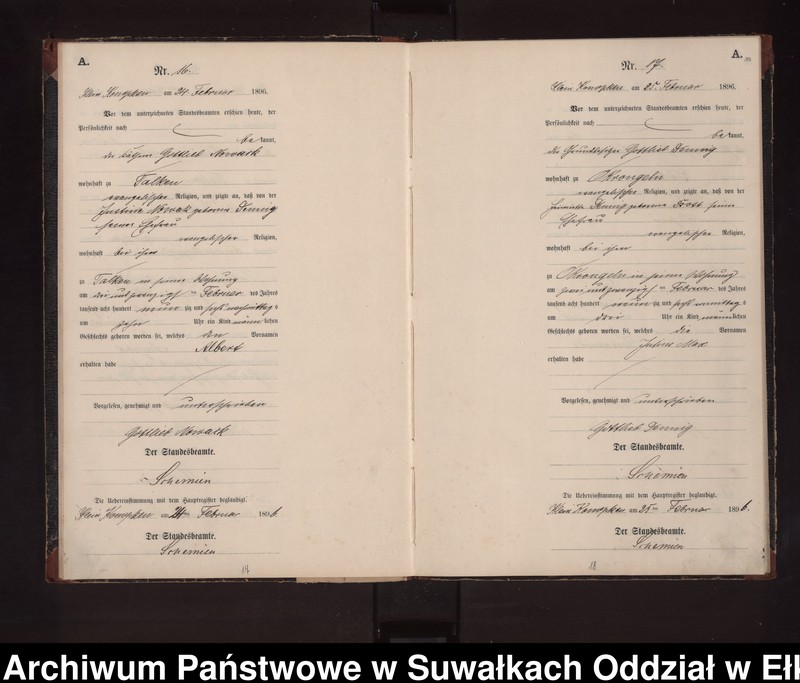 A.
Nr. 16.
Klein Konopken am 24 Februar 1896.
Vor dem unterzeichneten Standesbeamten erschien heute, der
Persönlichkeit nach
be kannt,
der Gottlieb Nowack
wohnhaft zu Talken
evangelischer Religion, und zeigte an, daß von der
Justine Nowak geborene Dennig
seiner Ehefrau
evangelischer Religion,
wohnhaft bei ihm
zu Talken in seiner Wohnung
am Februar des Jahres
tausend acht hundert neun zig und sechs nachmittag s
um zehn Uhr ein Kind männ lichen
Geschlechts geboren worden sei, welches den Vornamen
Albert
erhalten habe
Vorgelesen, genehmigt und unterschrieben
Gottlieb Nowack
Der Standesbeamte.
Schemien
Die Uebereinstimmung mit dem Hauptregister beglaubigt.
Klein Konopken am 24ten Februar 1896.
Der Standesbeamte.
Schemien
14
A.
Nr. 17.
Klein Konopken am 25. Februar 1896.
Vor dem unterzeichneten Standesbeamten erschien heute, der
Persönlichkeit nach
be kannt,
der Grundbesitzer Gottlieb Dennig
wohnhaft zu Okrongeln
evangelischer Religion, und zeigte an, daß von der
Dennig geborene seine
Ehefrau
evangelischer Religion,
wohnhaft bei ihm
zu Okrongeln in seiner Wohnung
am zwei und zwanzigsten Februar des Jahres
tausend acht hundert neun zig und sechs vormittag s
um drei Uhr ein Kind männ lichen
Geschlechts geboren worden sei, welches die Vornamen
Julius Max
erhalten habe
Vorgelesen, genehmigt und unterschrieben
Gottlieb Dennig
Der Standesbeamte.
Schemien
Die Uebereinstimmung mit dem Hauptregister beglaubigt.
Klein Konopken am 25ten Februar 1896.
Der Standesbeamte.
Schemien
18
Archiwum Państwowe w Suwałkach Oddział w Eł